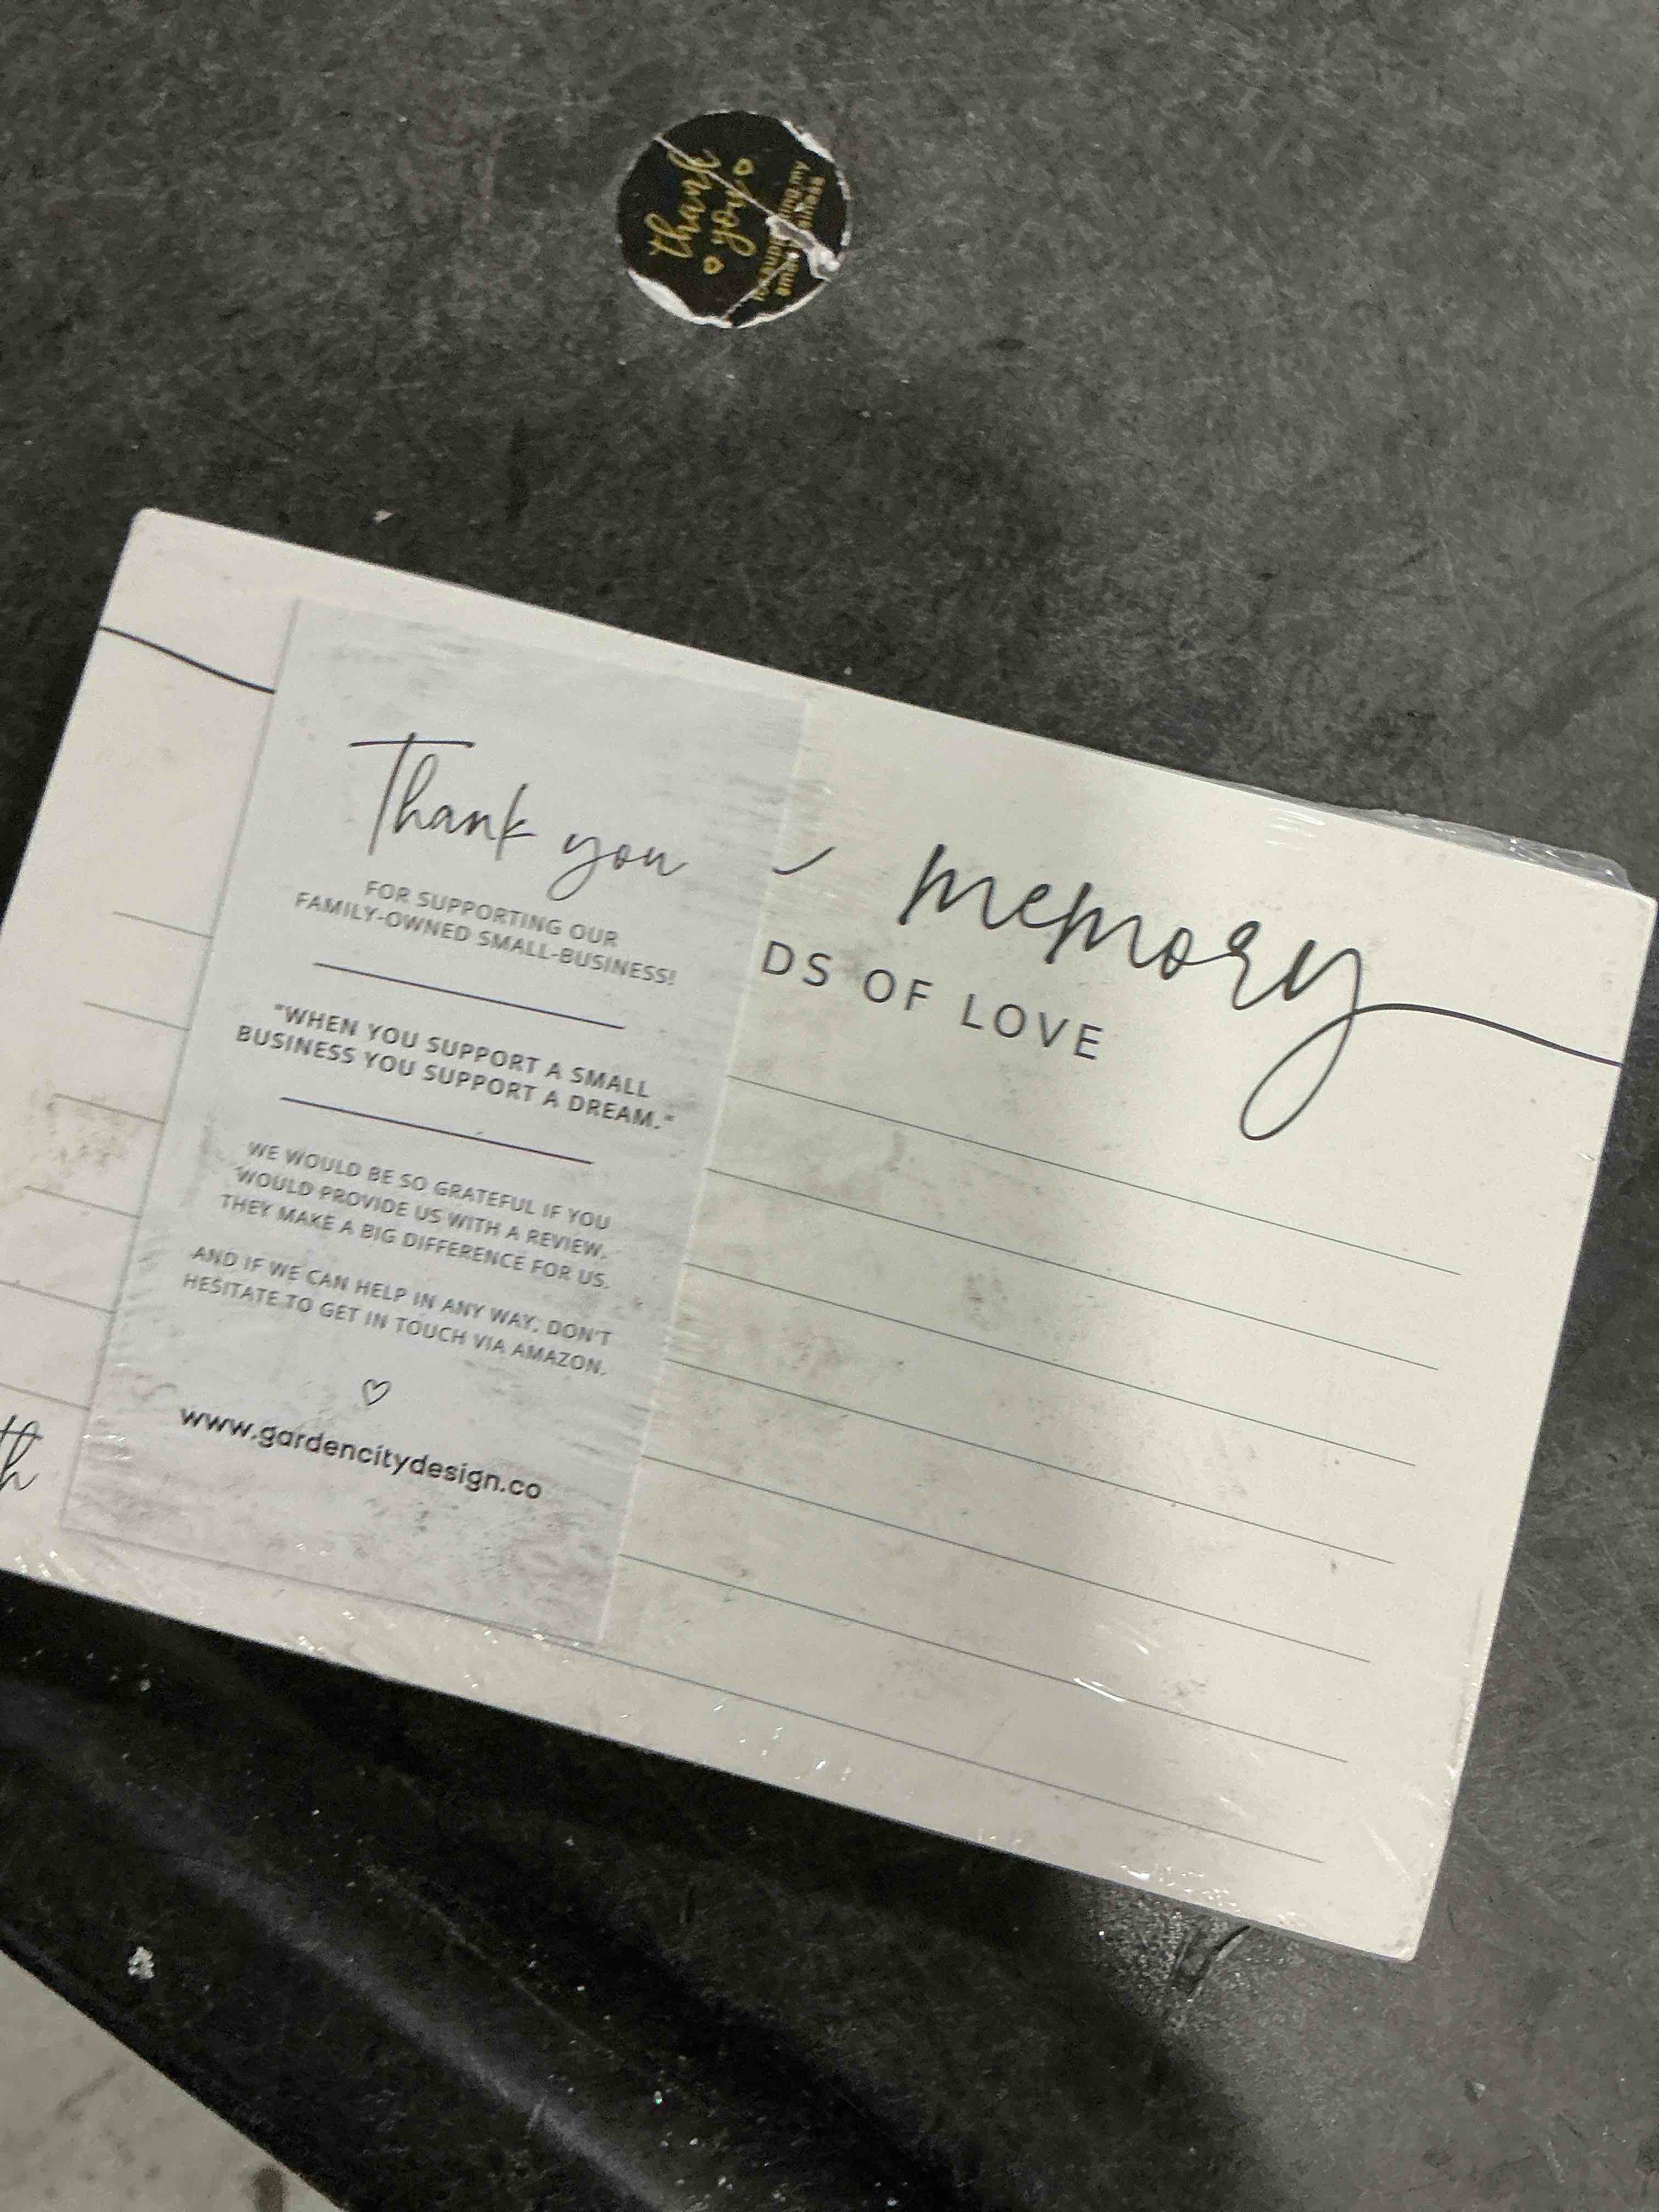 thank
you
small business
memory
DS OF LOVE
Thank you
FOR SUPPORTING OUR
FAMILY-OWNED SMALL-BUSINESS!
"WHEN YOU SUPPORT A SMALL
BUSINESS YOU SUPPORT A DREAM."
WE WOULD BE SO GRATEFUL IF YOU
WOULD PROVIDE US WITH A REVIEW,
THEY MAKE A BIG DIFFERENCE FOR US.
AND IF WE CAN HELP IN ANY WAY, DON'T
HESITATE TO GET IN TOUCH VIA AMAZON.
www.gardencitydesign.co
th